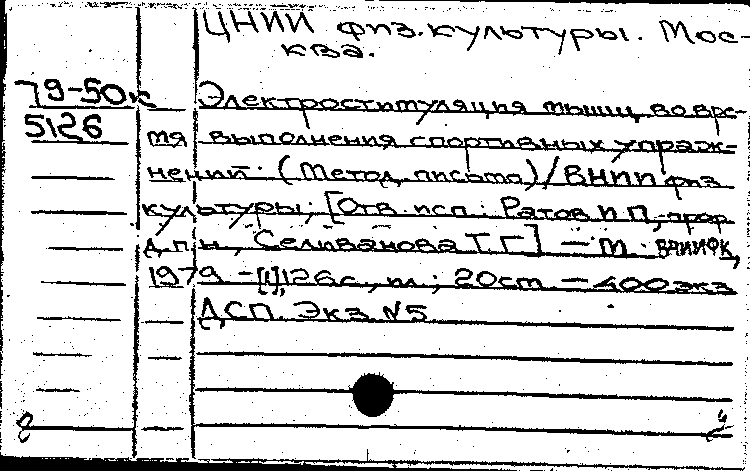 ЦНИИ физ.культуры. Мос-
ква.
79-50к Электростимуляция мышц во вре-
5126 мя выполнения спортивных упраж-
нений. (Метод. письмо)/ВНИИ физ
культуры; [Отв. исп.: Ратов И П, проф
д.п.н., Селиванова Т.Г.] — М.: ВНИИФК,
1979 - [1], 126с., ил.; 20см — 400экз
ДСП. Экз. №5